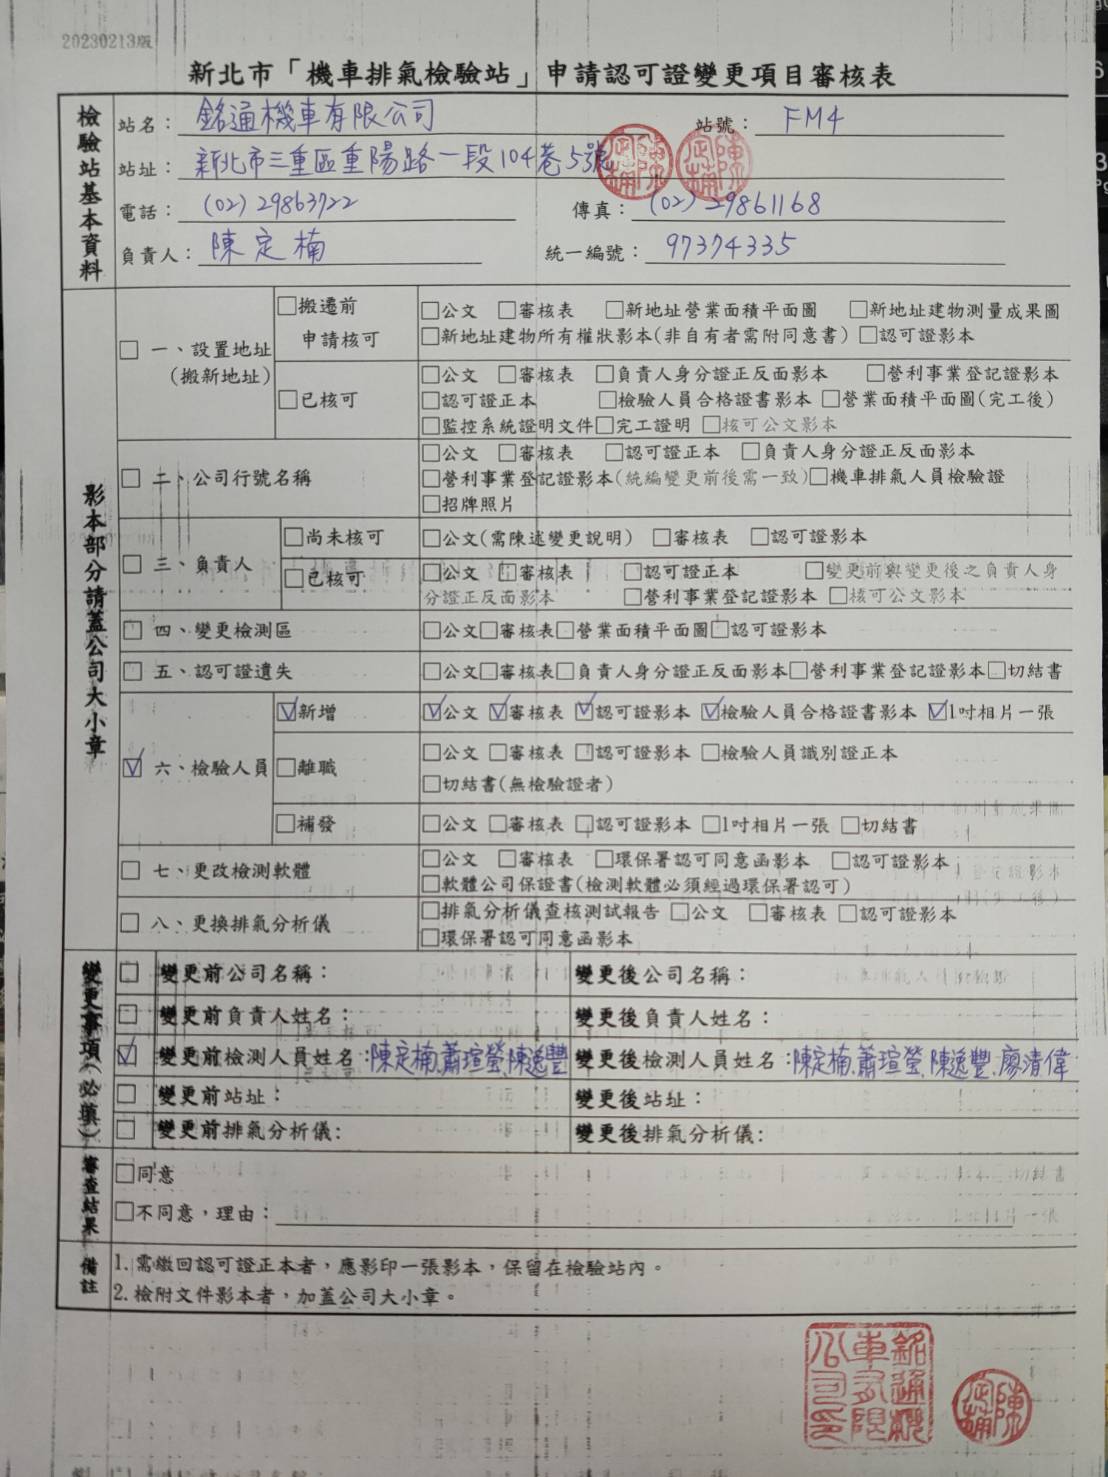 20230213版
新北市「機車排氣檢驗站」申請認可證變更項目審核表
檢驗站基本資料
站名：銘通機車有限公司 站號：FM4
站址：新北市三重區重陽路一段104巷5號
電話：(02) 29863722 傳真：(02) 29861168
負責人：陳定楠 統一編號：97374335
影本部分請蓋公司大小章
□ 一、設置地址(搬新地址)
□搬遷前申請核可
□公文 □審核表 □新地址營業面積平面圖 □新地址建物測量成果圖
□新地址建物所有權狀影本(非自有者需附同意書) □認可證影本
□已核可
□公文 □審核表 □負責人身分證正反面影本 □營利事業登記證影本
□認可證正本 □檢驗人員合格證書影本 □營業面積平面圖(完工後)
□監控系統證明文件□完工證明 □核可公文影本
□ 二、公司行號名稱
□公文 □審核表 □認可證正本 □負責人身分證正反面影本
□營利事業登記證影本(統編變更前後需一致)□機車排氣人員檢驗證
□招牌照片
□ 三、負責人
□尚未核可 □公文(需陳述變更說明) □審核表 □認可證影本
□已核可 □公文 □審核表 □認可證正本 □變更前與變更後之負責人身
分證正反面影本 □營利事業登記證影本 □核可公文影本
□ 四、變更檢測區 □公文□審核表□營業面積平面圖□認可證影本
□ 五、認可證遺失 □公文□審核表□負責人身分證正反面影本□營利事業登記證影本□切結書
☑ 六、檢驗人員
☑新增 ☑公文 ☑審核表 ☑認可證影本 ☑檢驗人員合格證書影本 ☑1吋相片一張
□離職 □公文 □審核表 □認可證影本 □檢驗人員識別證正本
□切結書(無檢驗證者)
□補發 □公文 □審核表 □認可證影本 □1吋相片一張 □切結書
□ 七、更改檢測軟體
□公文 □審核表 □環保署認可同意函影本 □認可證影本
□軟體公司保證書(檢測軟體必須經過環保署認可)
□ 八、更換排氣分析儀
□排氣分析儀查核測試報告 □公文 □審核表 □認可證影本
□環保署認可同意函影本
變更事項(必填)
□ 變更前公司名稱： 變更後公司名稱：
□ 變更前負責人姓名： 變更後負責人姓名：
☑ 變更前檢測人員姓名：陳定楠.蕭瑄瑩.陳逸豐 變更後檢測人員姓名：陳定楠.蕭瑄瑩.陳逸豐.廖清偉
□ 變更前站址： 變更後站址：
□ 變更前排氣分析儀： 變更後排氣分析儀：
審查結果
□同意
□不同意，理由：
備註
1. 需繳回認可證正本者，應影印一張影本，保留在檢驗站內。
2. 檢附文件影本者，加蓋公司大小章。
銘通機車有限公司印
陳定楠